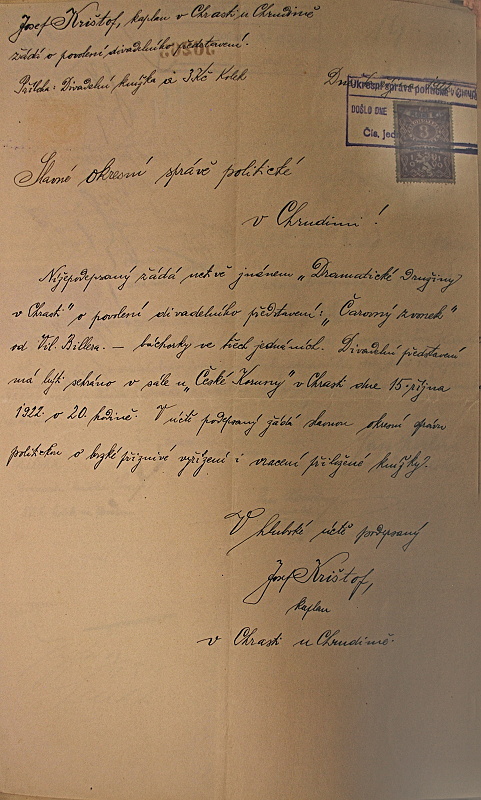 Josef Krištof, kaplan v Chrasti u Chrudimě
žádá o povolení divadelního představení.
Příloha: Divadelní knížka a 3 Kč Kolek
Okresní správa politická v CHRUD
DOŠLO DNE
Čís. jed
3
Slavné okresní správě politické
v Chrudimi!
Nížepodepsaný žádá uctivě jménem „Dramatické Družiny
v Chrasti" o povolení divadelního představení: „Čarovný zvonek"
od Vil. Billera. – báchorky ve třech jednáních. Divadelní představení
má býti sehráno v sále u „České Koruny" v Chrasti dne 15. října
1922 o 20. hodině. V úctě podepsaný žádá slavnou okresní správu
politickou o brzké příznivé vyřízení i vracení přiložené knížky.
V hluboké úctě podepsaný
Josef Krištof,
kaplan
v Chrasti u Chrudimě.